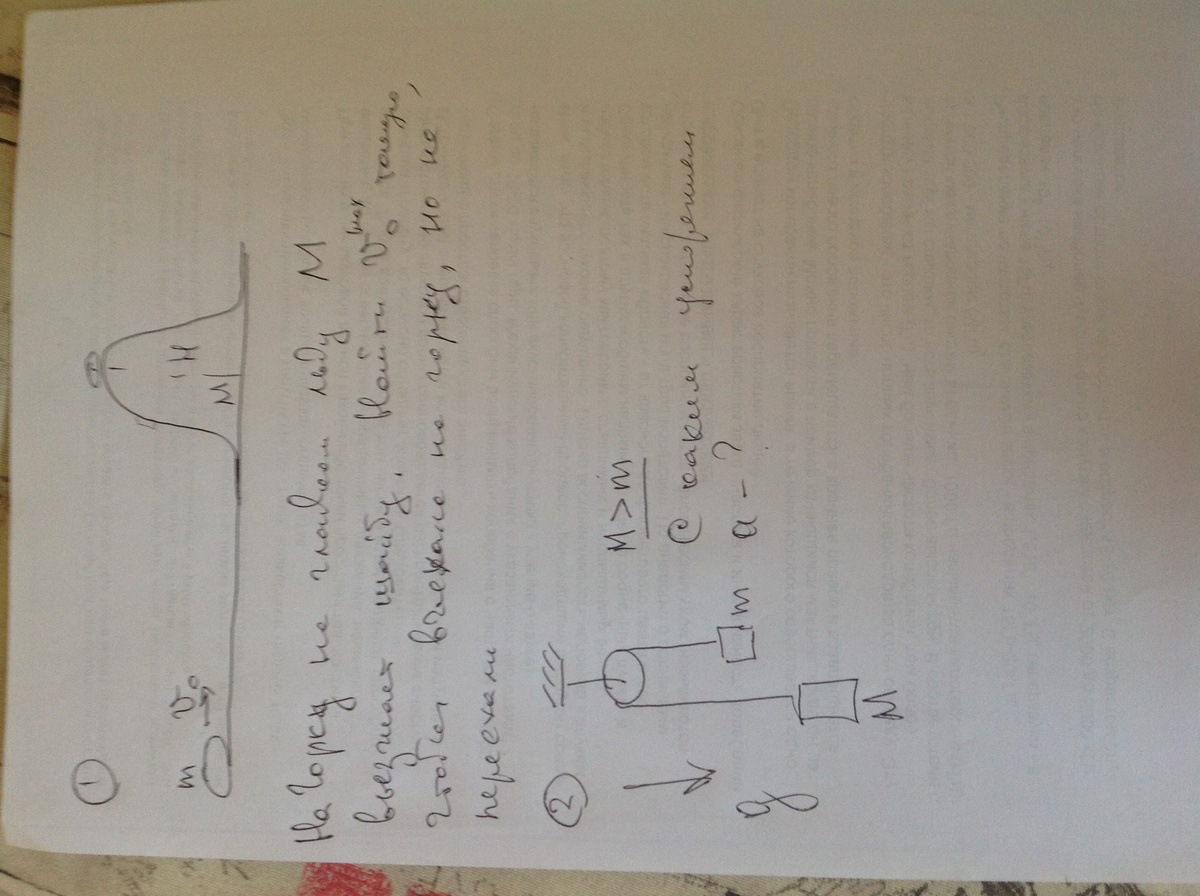 ①
m v₀
H
M
На горку на гладком льду M
въезжает шайбу. Найти v₀ᵐᵃˣ такую,
чтобы въехала на горку, но не
переехали
②
M>m
g
m
M
С каким ускорением
a - ?